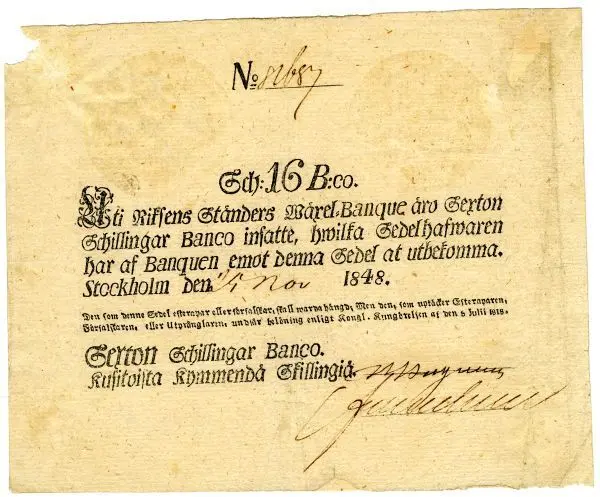 No 82687
Sch: 16 B:co.
Uti Riksens Ständers Wäxel Banque äro Sexton
Schillingar Banco insatte, hwilka Sedelhafwaren
har af Banquen emot denna Sedel at utbekomma.
Stockholm den Nov 1848.
Den som denne Sedel efterapar eller förfalskar, skall warda hängd; Men den, som uptäcker Efteraparen,
Förfalskaren, eller Utprånglaren, undfår belöning enligt Kongl. Kungörelsen af den 8 Julii 1818.
Sexton Schillingar Banco.
Kusitoista Kymmendä Skillingiä.